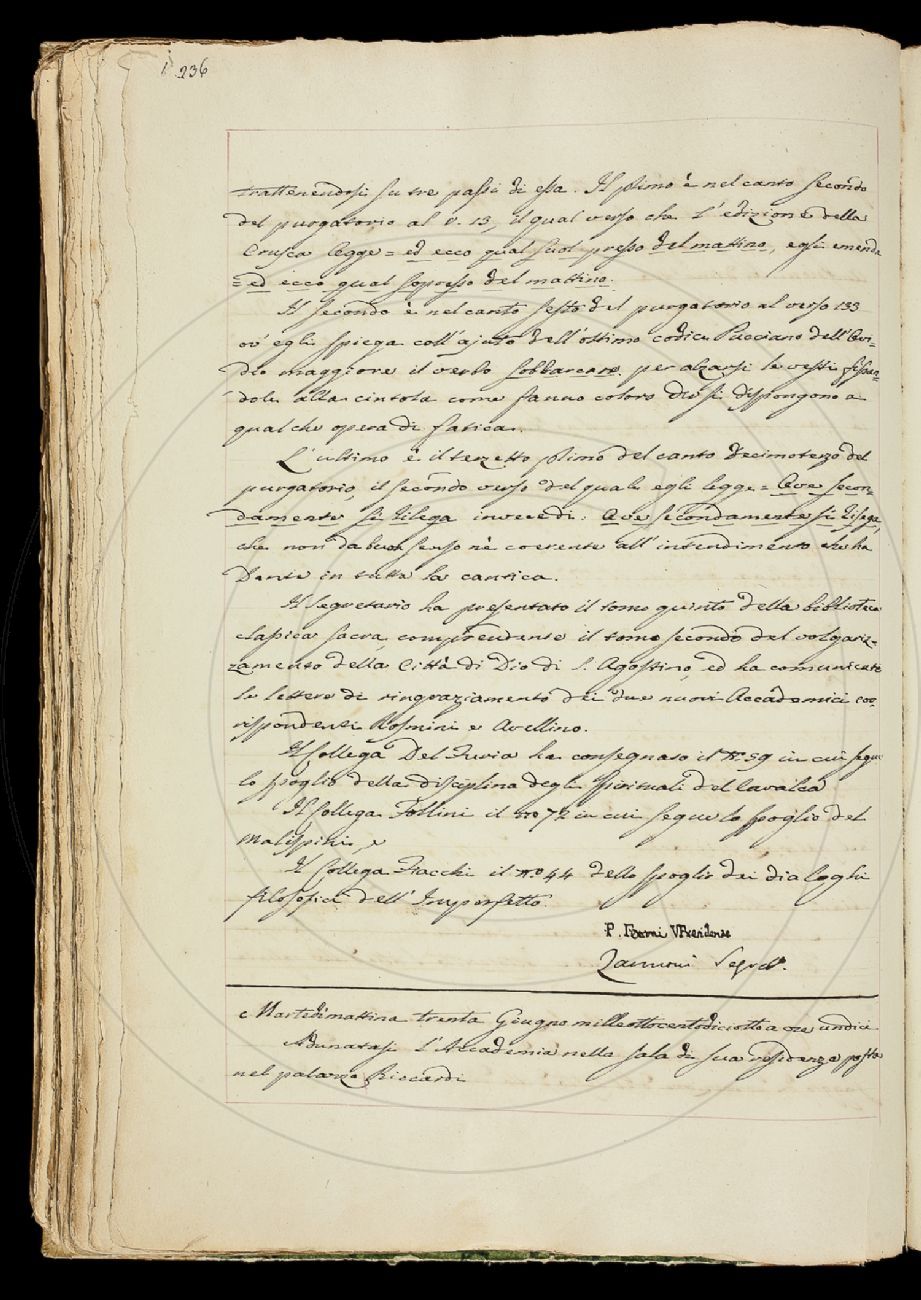 236
trattenendosi su tre passi di essa. Il primo è nel canto secondo
del purgatorio al v. 13, il qual verso che l'edizione della
Crusca legge = ed ecco qual suol presso del mattino, egli emenda
= ed ecco qual sopresso del mattino.
Il secondo è nel canto sesto del purgatorio al verso 133
ov' egli spiega coll' ajuto dell' ottimo codice Pucciano dell' Ovi-
dio maggiore il verbo sobbarcare per alzarsi le vesti fissan-
dole alla cintola come fanno coloro che si dispongono a
qualche opera di fatica.
L' ultimo è il terzetto primo del canto decimoterzo del
purgatorio, il secondo verso del quale egli legge = Ove secon-
damente si rilega invece di: Ove secondamente si risega,
che non dà buon senso nè coerente all' intendimento che ha
Dante in tutta la cantica.
Il Segretario ha presentato il tomo quinto della biblioteca
classica sacra, comprendente il tomo secondo del volgariz-
zamento della Città di Dio di S. Agostino, ed ha comunicate
le lettere di ringraziamento dei due nuovi Accademici cor-
rispondenti Rosmini e Avellino.
Il Collega Del Furia ha consegnato il n.º 59 in cui segue
lo spoglio della disciplina degli spirituali del Cavalca
Il Collega Follini il nº 72 in cui segue lo spoglio del
Malispini, e
Il Collega Fiacchi il nº 44 dello spoglio dei dialoghi
filosofici dell' Imperfetto.
P. Ferroni VPresidente
Zannoni Segret.º
Martedì mattina trenta Giugno milleottocentodiciotto a ore undici
Adunatasi l' Accademia nella sala di sua residenza posta
nel palazzo Riccardi